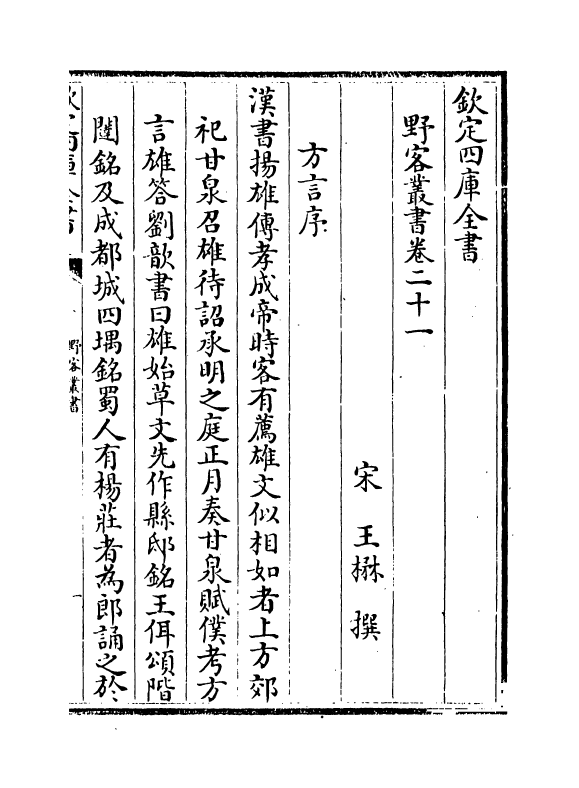 欽定四庫全書
野客叢書卷二十一
宋　王楙　撰
方言序
漢書揚雄傳孝成帝時客有薦雄文似相如者上方郊
祀甘泉召雄待詔承明之庭正月奏甘泉賦僕考方
言雄答劉歆書曰雄始草文先作縣邸銘王佴頌階
闥銘及成都城四堣銘蜀人有楊莊者為郎誦之於
野客叢書
一